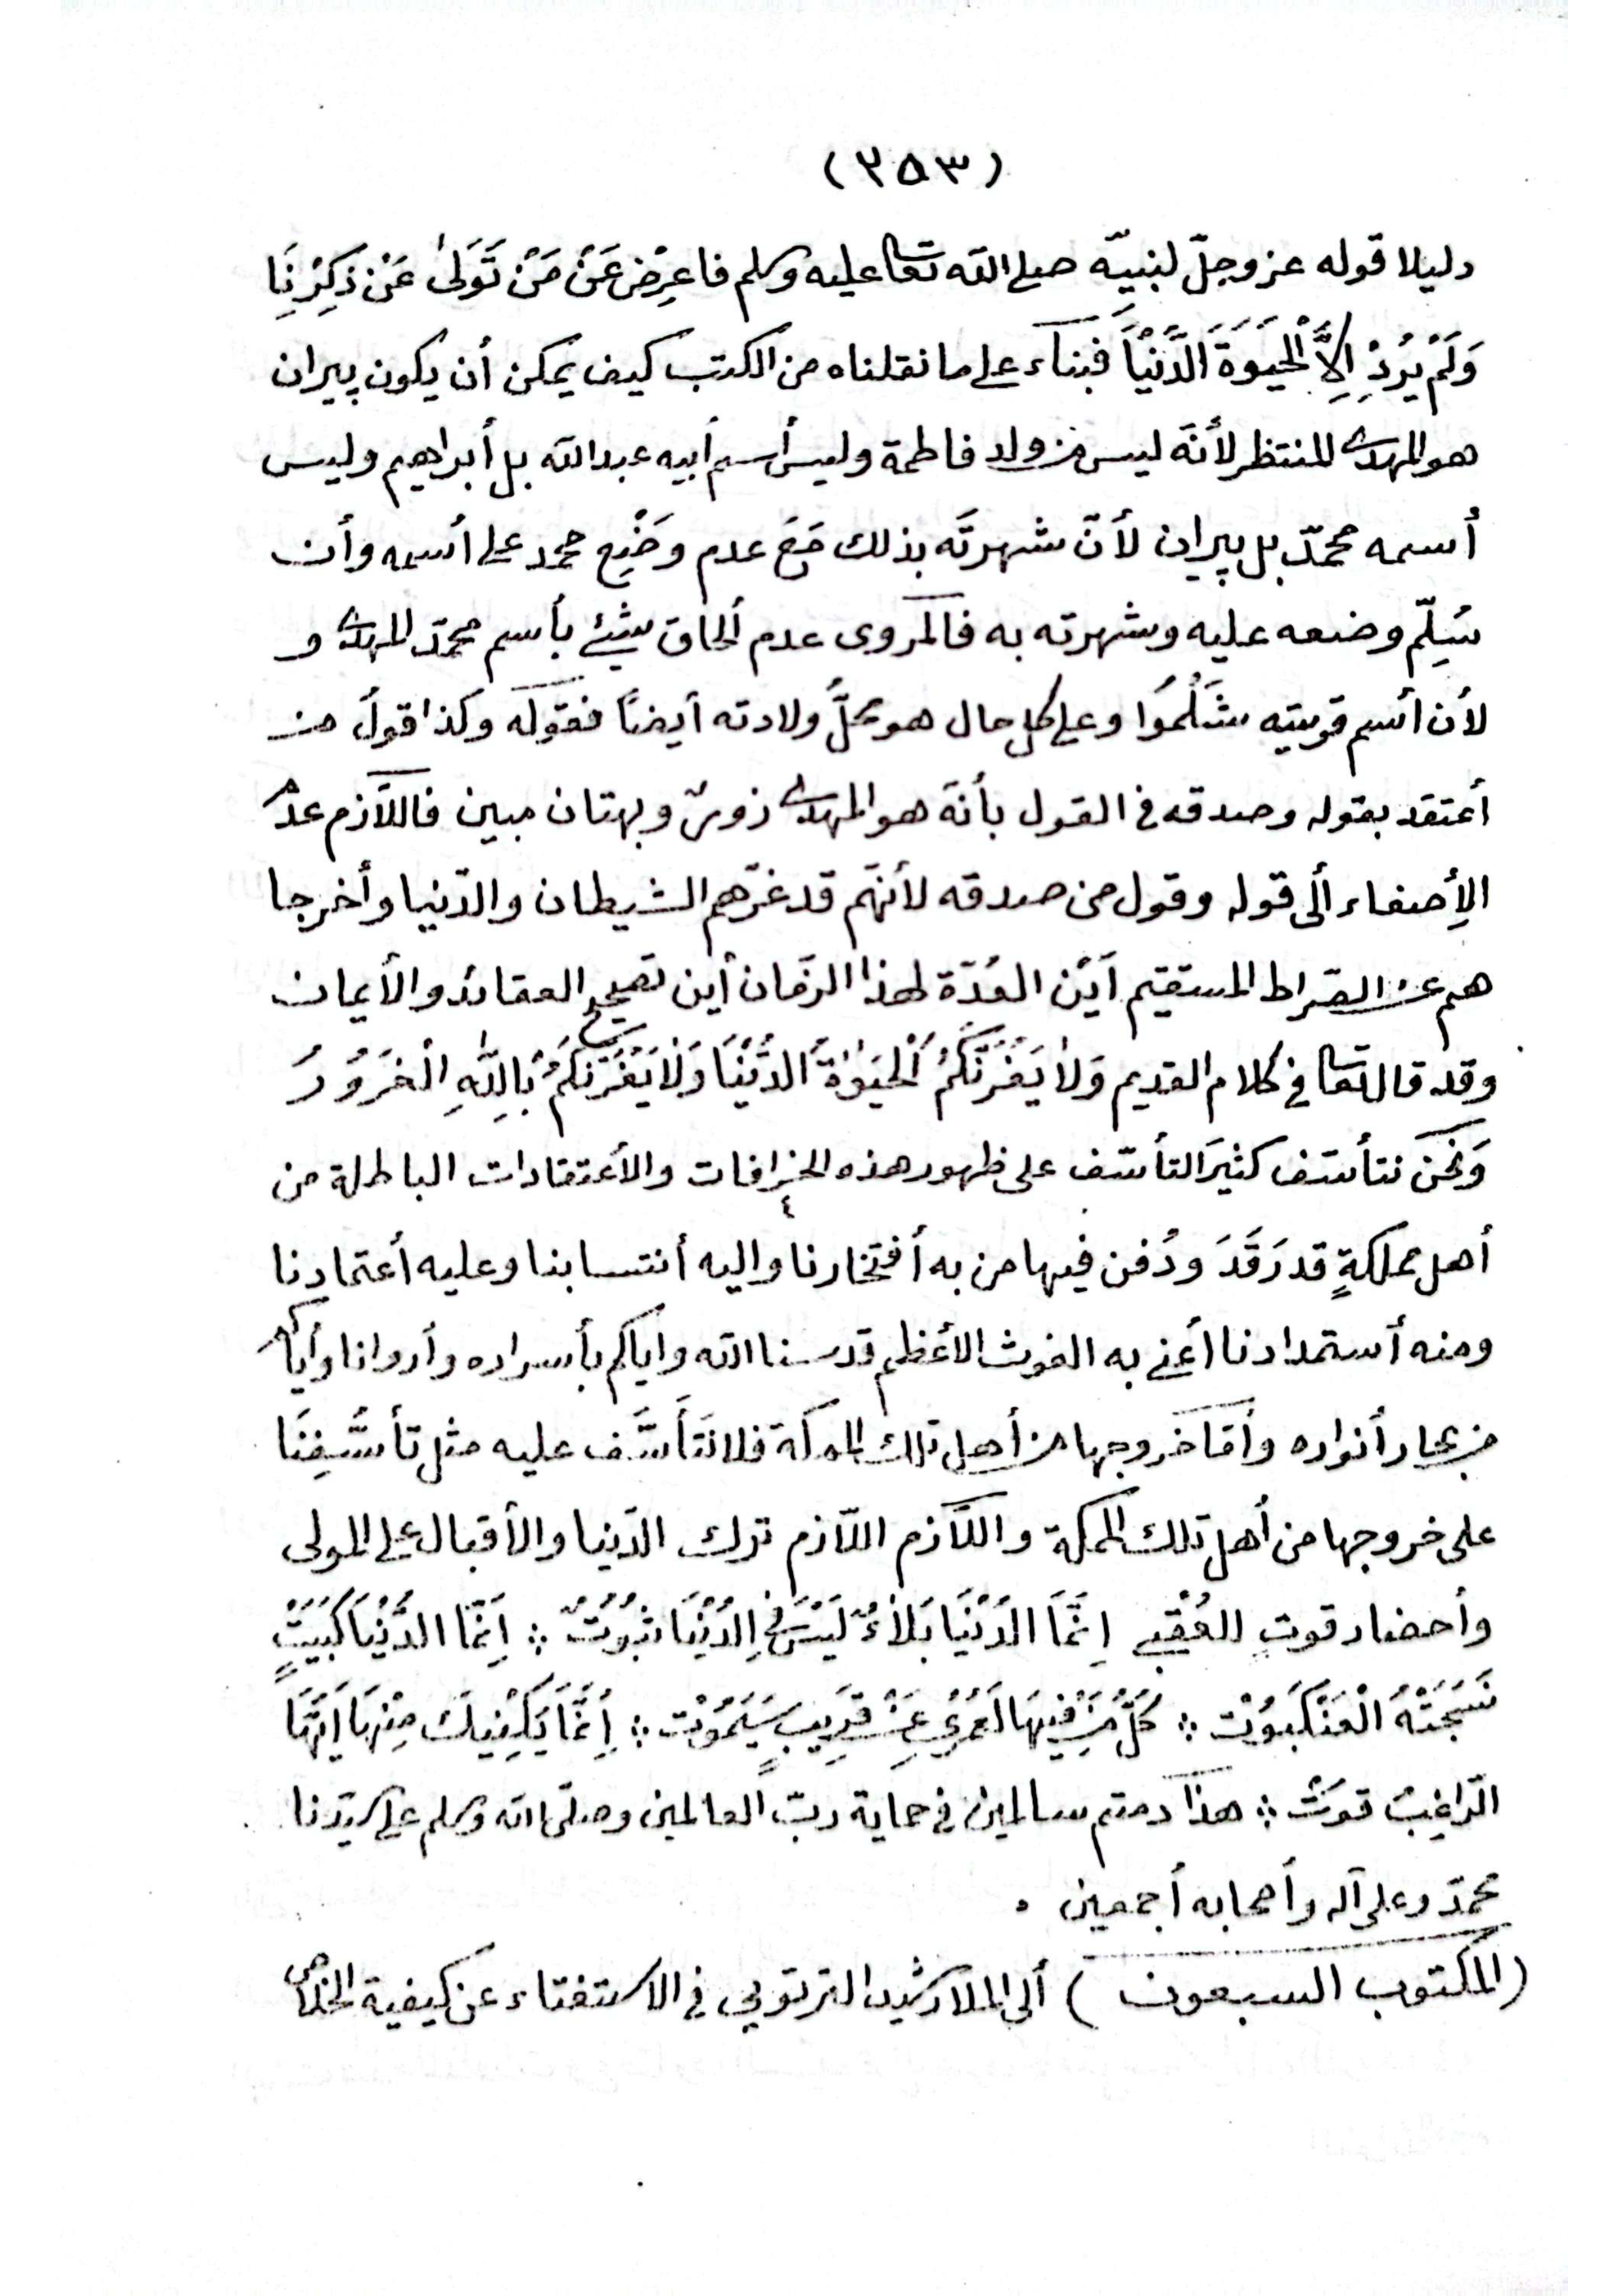 (٢٥٣)
دليلا قوله عز وجلّ لنبيّه صلى الله تعا عليه وسلم فاعرِضْ عَنْ مَنْ تَوَلىٰ عَنْ ذِكِرْنَا
وَلَمْ يُرِدْ اِلاَّ الْحَيَوةَ الدُّنْيَا فبناء على ما نقلناه من الكتب كيف يمكن أن يكون پيران
هو المهدى المنتظر لأنّه ليس من ولد فاطمة وليس أسم أبيه عبدالله بل أبراهيم وليس
أسمه محمدّ بل پيران لأنّ شهرتَه بذلك مَعَ عدم وَضْعِ محمد على أسمه وأن
سُلِّم وضعه عليه وشهرته به فالمروى عدم ألحاق شيْئٍ بأسم محمدّ المهدى و
لأن أسم قريته شَلْمُوا وعلى كل حال هو محلُّ ولادته أيضاً فقوله وكذا قولُ من
أعتقد بقوله وصدقه فى القول بأنّه هو المهدى زورٌ وبهتان مبين فاللاَّزم عدم
الأِصغاء ألى قوله وقول من صدقه لأنهّم قد غرّهم الشيطان والدّنيا وأخرجا
هم عن الصّراط المستقيم اَيْن العُدّة لهذا الزّمان أين تصحيح العقائد والأيمان
وقد قال تعا فى كلام القديم وَلاٰ يَغُرَّنَّكُمُ الْحَيَوٰةُ الدُّنْيَا وَلاٰ يَغُرَّنَّكُمْ بِاللّٰهِ الْغَرُورُ
وَنحن نتأسّف كثيرَ التأسّف على ظهور هذه الخرافات والأعتقادات الباطلة من
أهل مملكةٍ قد رَقَدَ ودُفن فيها من به أفتخارنا واليه أنتسابنا وعليه أعتمادنا
ومنه أستمدادنا أعنى به الغوث الأعظم قدسنا الله واياكم بأسراره وأروانا وأياكم
من بحار أنواره وأمّا خروجها من أهل تلك المملكة فلا نَتَأسَّف عليه مثل تأسُّفِنَا
على خروجها من أهل تلك المملكة واللاَّزم اللاّزم ترك الدّنيا والأقبال على المولى
وأحضار قوت العُقْبى اِنَّمَا الدُّنْيَا بَلاٰءٌ لَيْسَ فِى الدُّنْيَا ثُبُوُتٌ ؞ اِنَّمَا الدُّنْيَا كَبَيْتٍ
نَسَجَتْهُ الْعَنْكَبُوْت ؞ كُلُّ مَنْ فِيْهَا لَعَمْرِي عَنْ قَرِيبٍ سَيَمُوْت ؞ اِنَّمَا يَكْفِيْكَ مِنْهَا اَيُّهَا
الرّاغِبُ قُوْتٌ ؞ هذا دمتم سالمين فى حماية ربّ العالمين وصلّى الله وسلم على سيّدنا
محمدّ وعلى آله وأصحابه أجمعين .
(المكتوب السبعون) ألى الملا رشيد التربتوبي فى الاستفتاء عن كيفية الخلاص